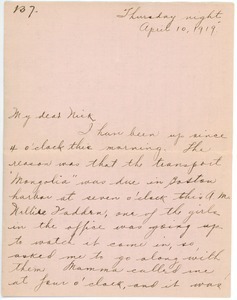 137.
Thursday night,
April 10, 1919
My dear Nick
I have been up since
4 o'clock this morning. The
reason was that the transport
"Mongolia" was due in Boston
harbor at seven o'clock this A.M.
one of the girls
in the office was going up
to watch it come in, so
asked me to go along with
them. Mamma called me
at four o'clock, and it was